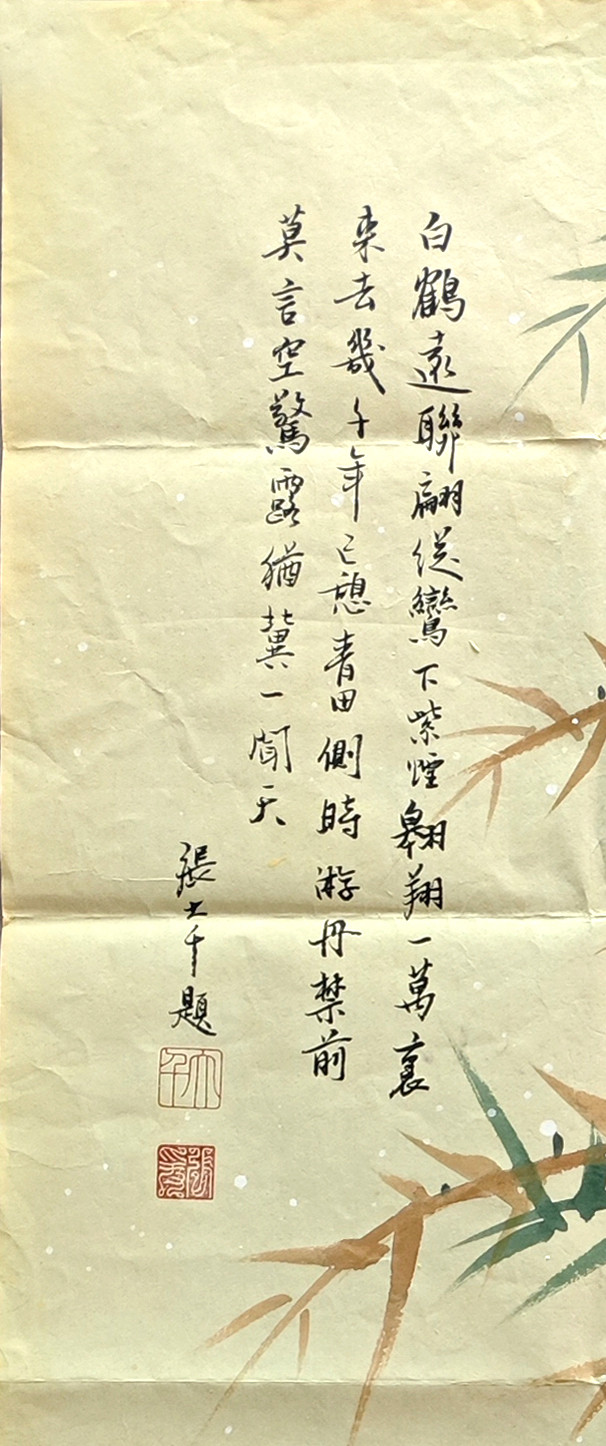 白鶴遠聯翩從鸞下紫煙翱翔一萬裏
来去幾千年已憩青田側時游丹禁前
莫言空驚露猶冀一聞天
張大千題
大千
張爰